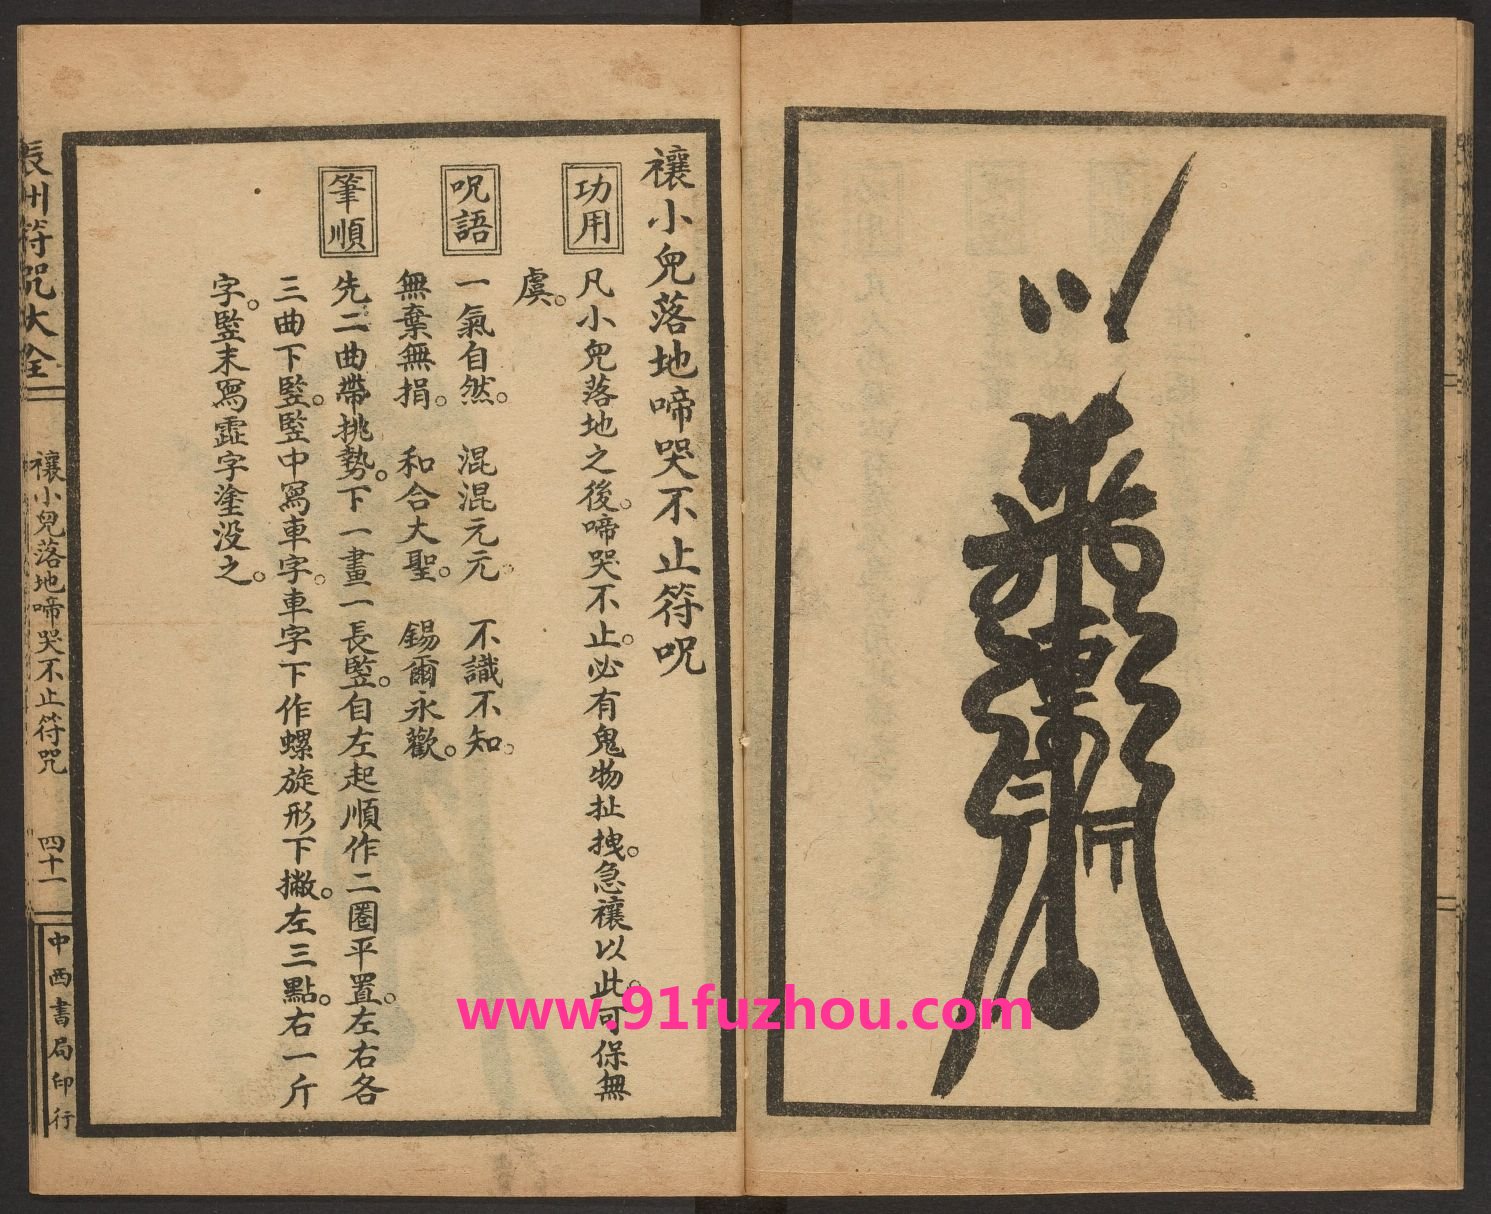 禳小兒落地啼哭不止符咒
功用
凡小兒落地之後。啼哭不止。必有鬼物扯拽。急禳以此。可保無
虞。
咒語
一氣自然。 混混元元。 不識不知。
無棄無捐。 和合大聖。 錫爾永歡。
筆順
先二曲帶挑勢。下一畫一長竪。自左起順作二圈平置。左右各
三曲下竪。竪中寫車字。車字下作螺旋形下撇。左三點。右一斤
字。竪末寫霊字塗没之。
辰州符咒大全
禳小兒落地啼哭不止符咒
四十一
中西書局印行
www.91fuzhou.com